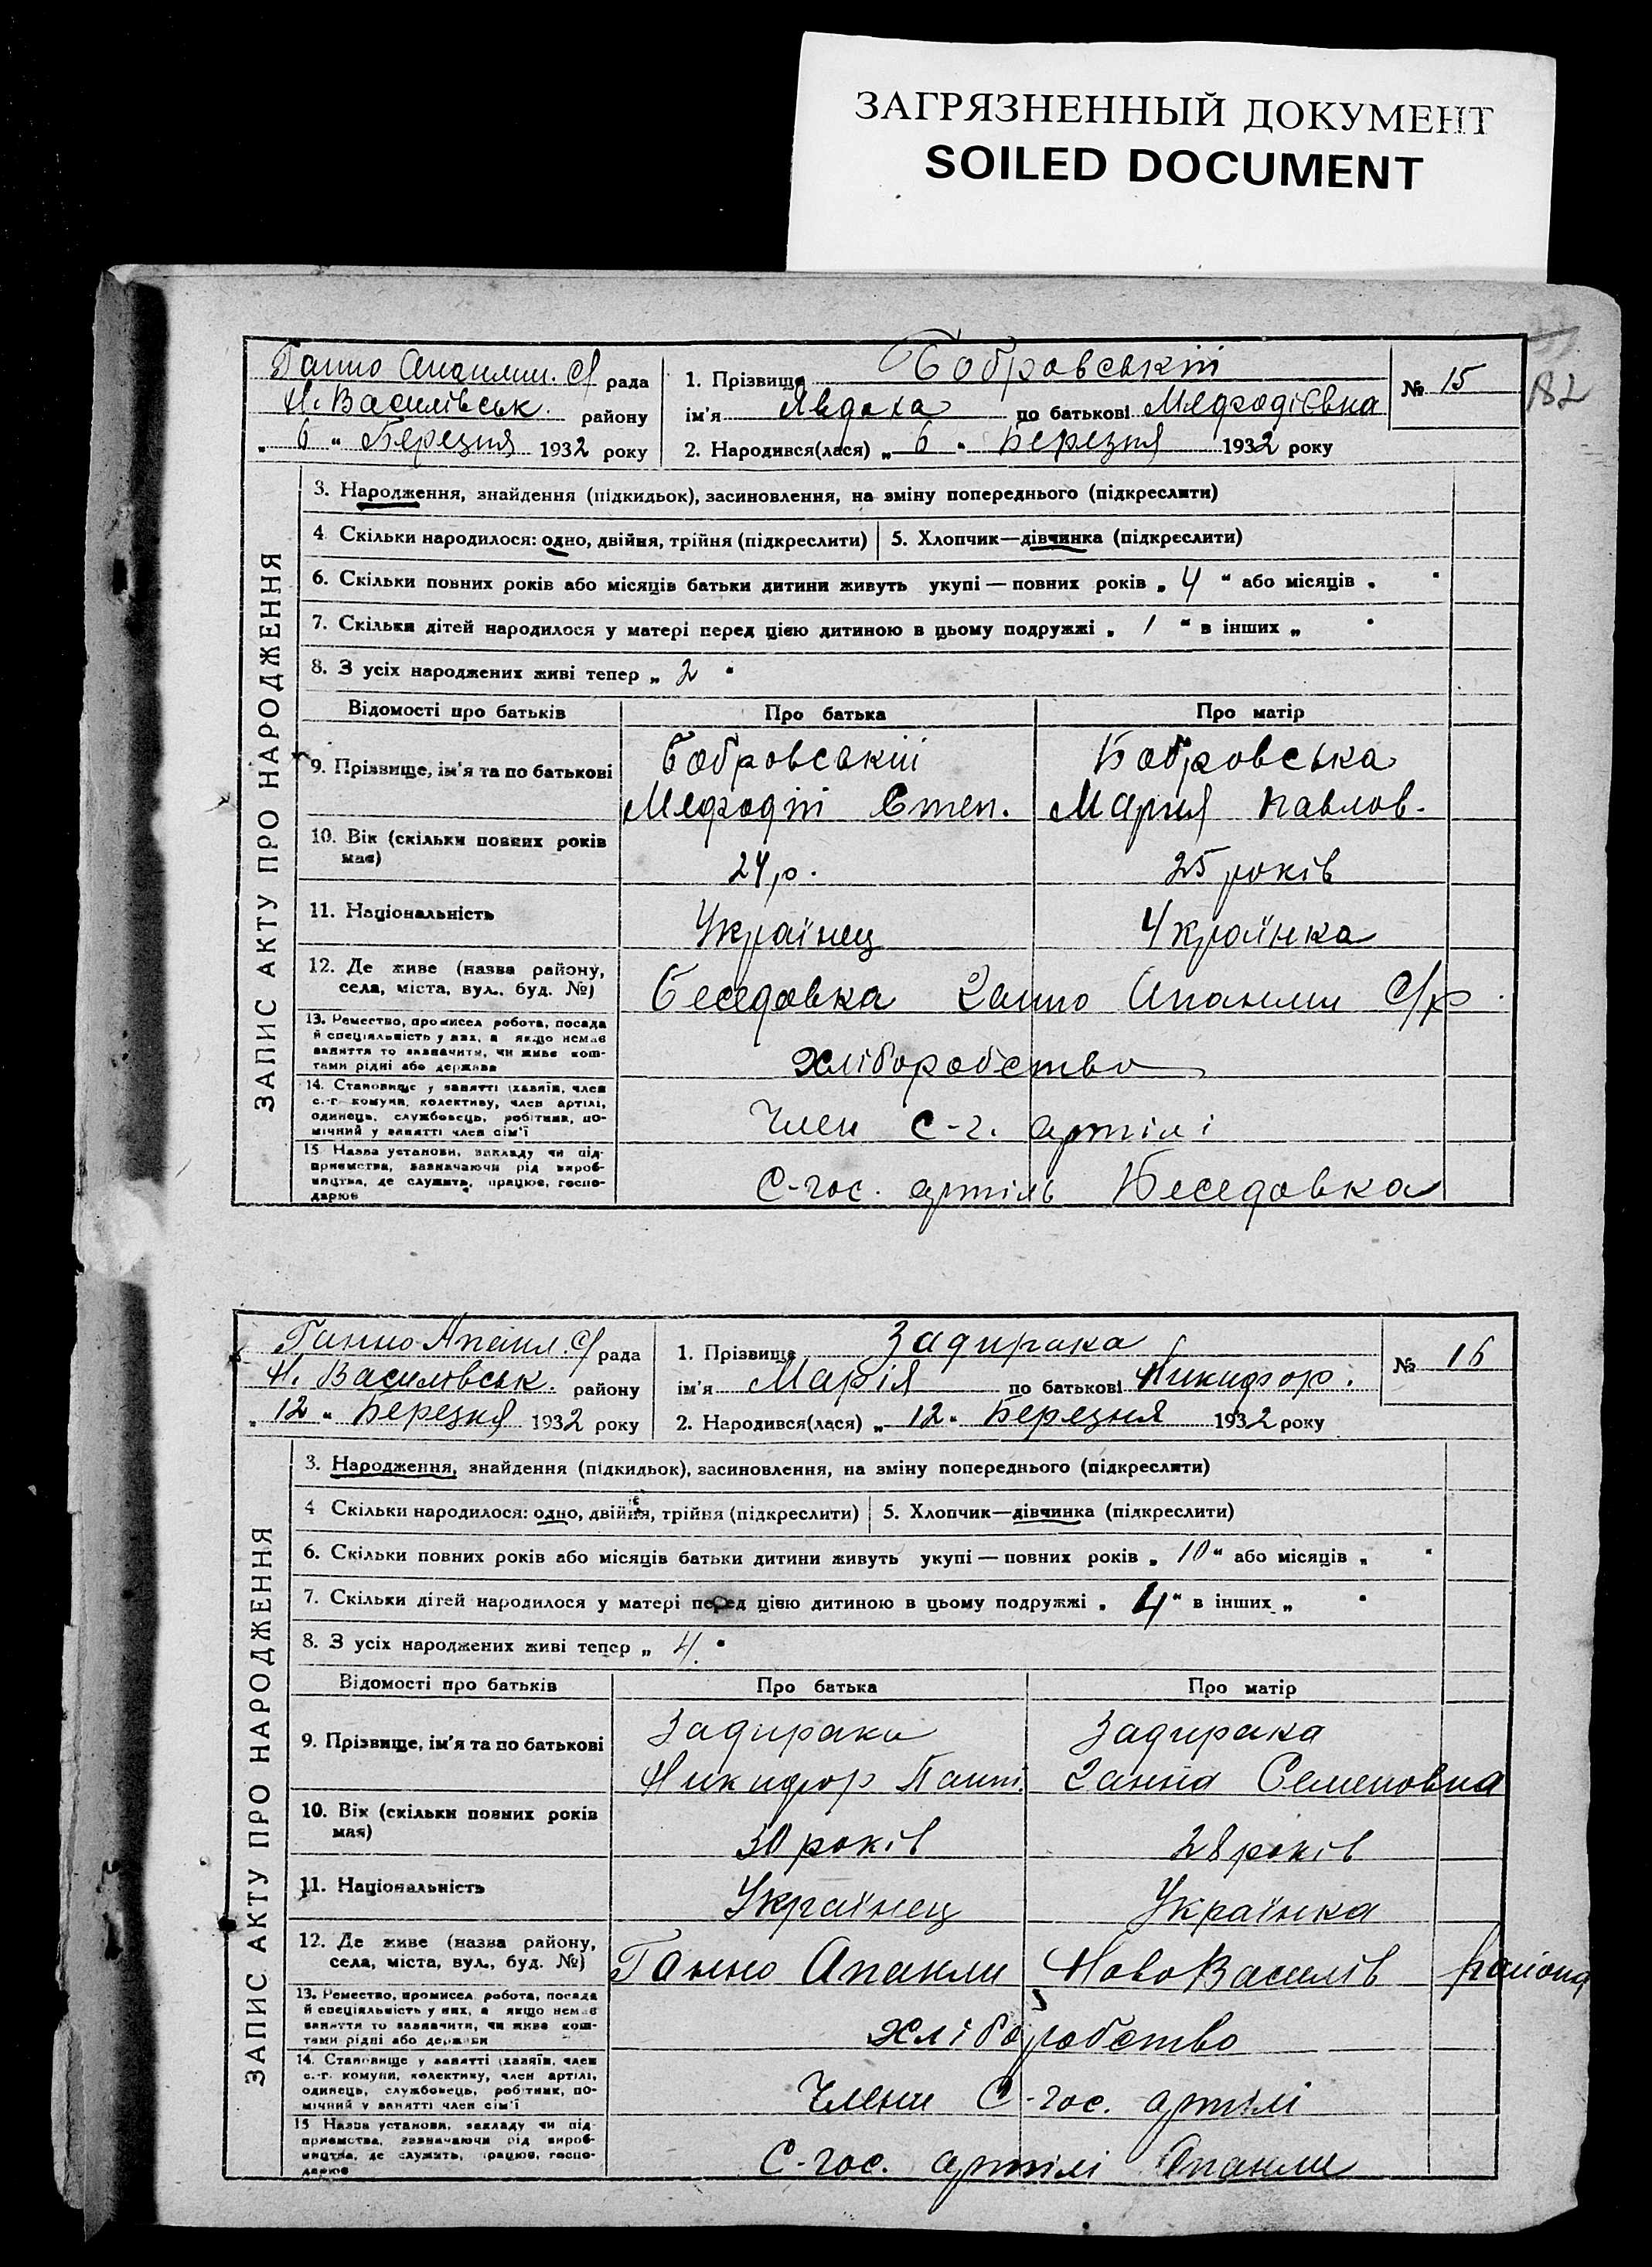 ЗАГРЯЗНЕННЫЙ ДОКУМЕНТ
SOILED DOCUMENT
182
Ганно Апаклин. С/ рада
Н. Василівськ. району
„ 6 “ Березня 1932 року
1. Прізвище Бобровський
ім'я Явдоха по батькові Мефодієвна
2. Народився(лася) „ 6 “ Березня 1932 року
№ 15
ЗАПИС АКТУ ПРО НАРОДЖЕННЯ
3. Народження, знайдення (підкидьок), засиновлення, на зміну попереднього (підкреслити)
4 Скільки народилося: одно, двійня, трійня (підкреслити) 5. Хлопчик—дівчинка (підкреслити)
6. Скільки повних років або місяців батьки дитини живуть укупі — повних років „ 4 “ або місяців „ “
7. Скільки дітей народилося у матері перед цією дитиною в цьому подружжі „ 1 “ в інших „ “
8. З усіх народжених живі тепер „ 2 “
Відомості про батьків Про батька Про матір
9. Прізвище, ім'я та по батькові
Бобровський Бобровська
Мефодій Степ. Мария Павлов.
10. Вік (скільки повних років має)
24 р. 25 років
11. Національність
Українец Українка
12. Де живе (назва району, села, міста, вул., буд. №)
Беседовка Ганно Апаклин С/р
13. Ремество, промисел робота, посада й спеціяльність у них, а якщо немає заняття то зазначити, чи живе коштами рідні або держави
хліборобство
14. Становище у занятті (хазяїн, член с.-г. комуни, колективу, член артілі, одинець, службовець, робітник, помічний у занятті член сім'ї
Член с-г. артілі
15 Назва установи, закладу чи підприємства, зазначаючи рід виробництва, де служить, працює, господарює
С-гос. артіль Беседовка
Ганно Апакл. С/ рада
Н. Василівськ. району
„ 12 “ Березня 1932 року
1. Прізвище Задирака
ім'я Марія по батькові Никифор.
2. Народився(лася) „ 12 “ Березня 1932 року
№ 16
ЗАПИС АКТУ ПРО НАРОДЖЕННЯ
3. Народження, знайдення (підкидьок), засиновлення, на зміну попереднього (підкреслити)
4 Скільки народилося: одно, двійня, трійня (підкреслити) 5. Хлопчик—дівчинка (підкреслити)
6. Скільки повних років або місяців батьки дитини живуть укупі — повних років „ 10 “ або місяців „ “
7. Скільки дітей народилося у матері перед цією дитиною в цьому подружжі „ 4 “ в інших „ “
8. З усіх народжених живі тепер „ 4. “
Відомості про батьків Про батька Про матір
9. Прізвище, ім'я та по батькові
Задирака Задирака
Никифор Ганна Семеновна
10. Вік (скільки повних років має)
30 років 28 років
11. Національність
Українец Українка
12. Де живе (назва району, села, міста, вул., буд. №)
Ганно Апакли Ново Василів района
13. Ремество, промисел робота, посада й спеціяльність у них, а якщо немає заняття то зазначити, чи живе коштами рідні або держави
хліборобство
14. Становище у занятті (хазяїн, член с.-г. комуни, колективу, член артілі, одинець, службовець, робітник, помічний у занятті член сім'ї
Члени С-гос. артілі
15 Назва установи, закладу чи підприємства, зазначаючи рід виробництва, де служить, працює, господарює
С-гос. артілі Апакли